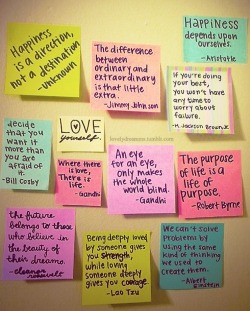 Happiness
is a direction,
not a destination
-unknown
The difference
between
ordinary and
extraordinary
is that little
extra.
-Jimmy Johnson
Happiness
depends upon
ourselves.
-Aristotle
If you're doing
your best,
you won't have
any time to
worry about
failure.
-H. Jackson Brown Jr.
decide
that you
want it
more than
you are
afraid of
it.
-Bill Cosby
LOVE
yourself.
Where there
is love,
There is
life.
-Gandhi
An eye
for an eye,
only makes
the whole
world blind.
-Gandhi
The purpose
of life is a
life of
purpose.
-Robert Byrne
the future
belongs to those
who believe in
the beauty of
their dreams.
-eleanor
roosevelt
Being deeply loved
by someone gives
you strength,
while loving
someone deeply
gives you courage
-Lao Tzu
We can't solve
problems by
using the same
kind of thinking
we used to
create them.
-Albert
Einstein